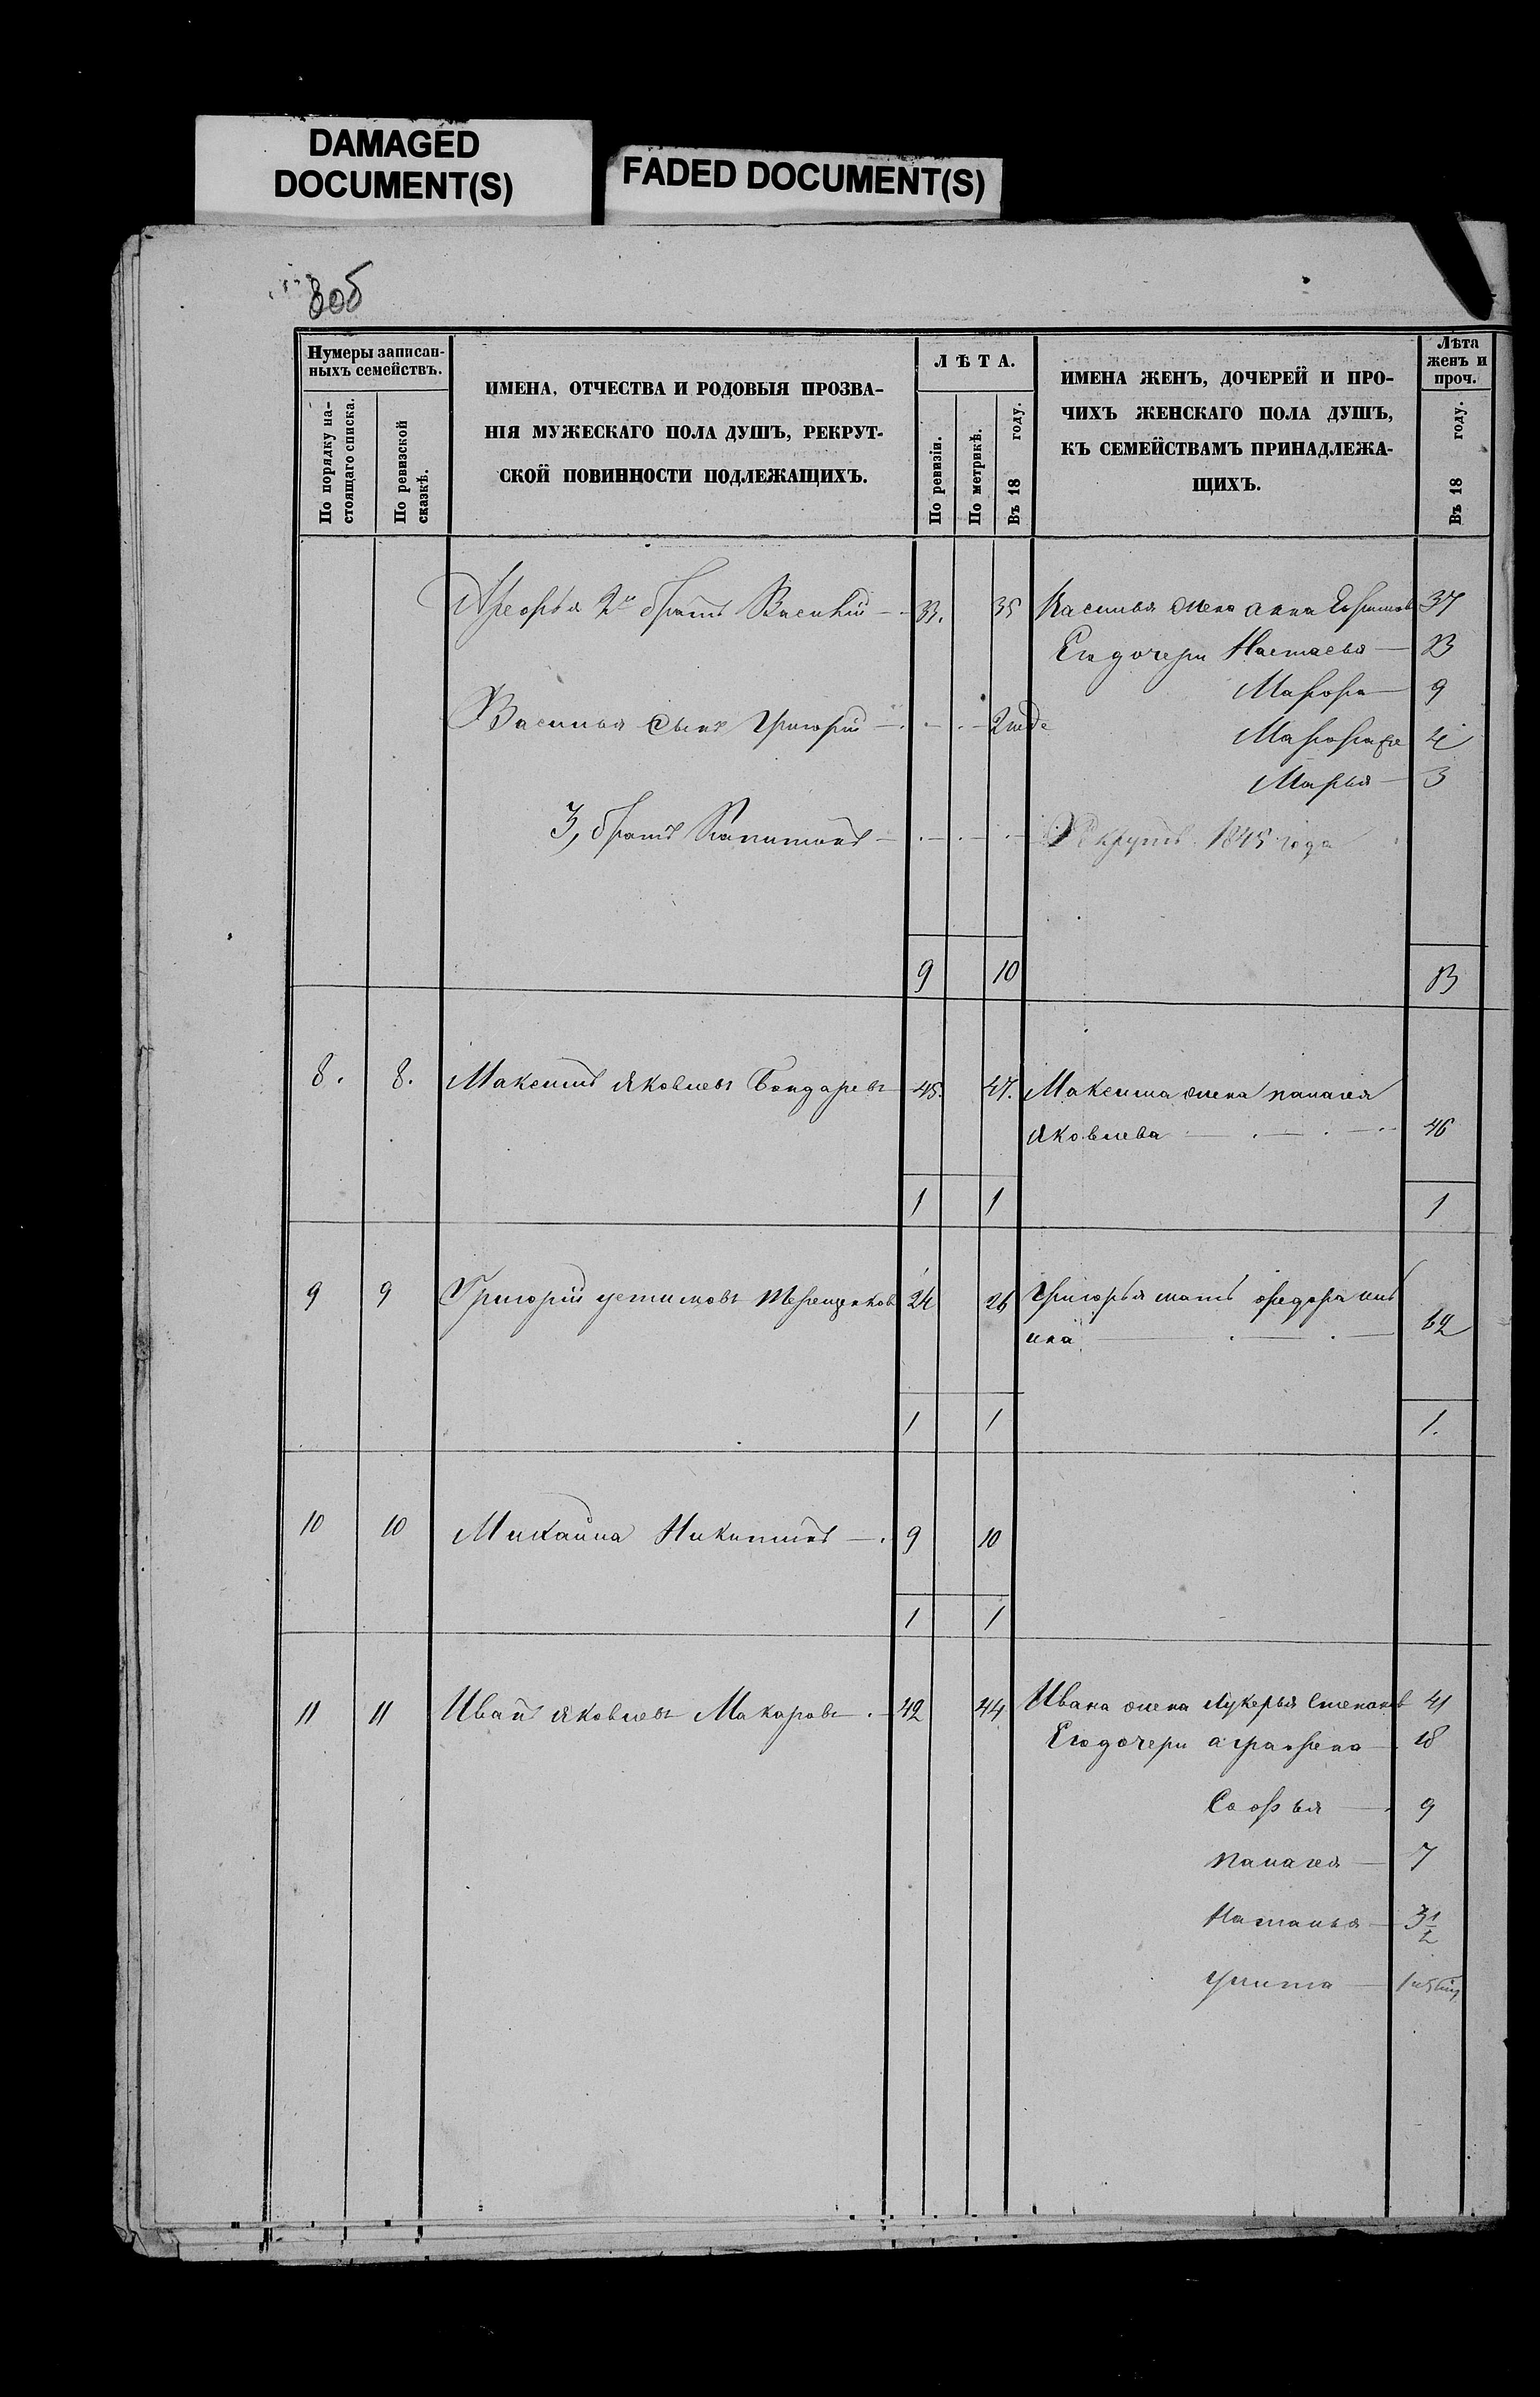 DAMAGED
DOCUMENT(S)
FADED DOCUMENT(S)
80б
Нумеры записан-
ныхъ семействъ.
По порядку на-
стоящаго списка.
По ревизской
сказкѣ.
ИМЕНА, ОТЧЕСТВА И РОДОВЫЯ ПРОЗВА-
НІЯ МУЖЕСКАГО ПОЛА ДУШЪ, РЕКРУТ-
СКОЙ ПОВИННОСТИ ПОДЛЕЖАЩИХЪ.
ЛѢТА.
По ревизіи.
По метрикѣ.
Въ 18 году.
ИМЕНА ЖЕНЪ, ДОЧЕРЕЙ И ПРО-
ЧИХЪ ЖЕНСКАГО ПОЛА ДУШЪ,
КЪ СЕМЕЙСТВАМЪ ПРИНАДЛЕЖА-
ЩИХЪ.
Лѣта
женъ и
проч.
Въ 18 году.
2й братъ Василій 33. 35 Василья жена Анна 37
Его дочери Настасья 13
9
Василья сынъ Григорій 2 года
4
Марья 3
3, братъ Капитонъ Рекрутъ 1845 года
9 10 13
8. 8. Максимъ Яковлевъ Бондаревъ 45. 47. Максима жена Палагея
Яковлева 46
1 1 1
9 9 Григорій Устиновъ Терещенковъ 24 26 Григорья мать Федора
62
1 1 1.
10 10 Михайла Никитинъ 9 10
1 1
11 11 Иванъ Яковлевъ Макаровъ 42 44 Ивана жена Лукерья Степанов 41
Его дочери Аграфена 18
Софья 9
Палагея 7
Наталья 3 1/2
1